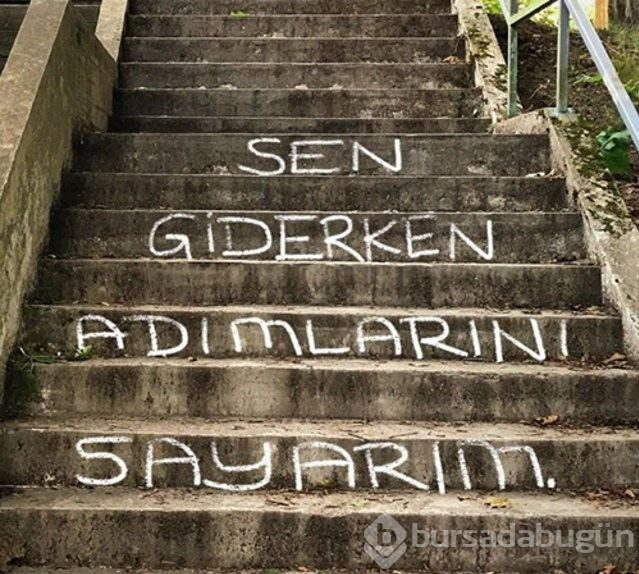 SEN
GİDERKEN
ADIMLARINI
SAYARIM.
b bursadabugün